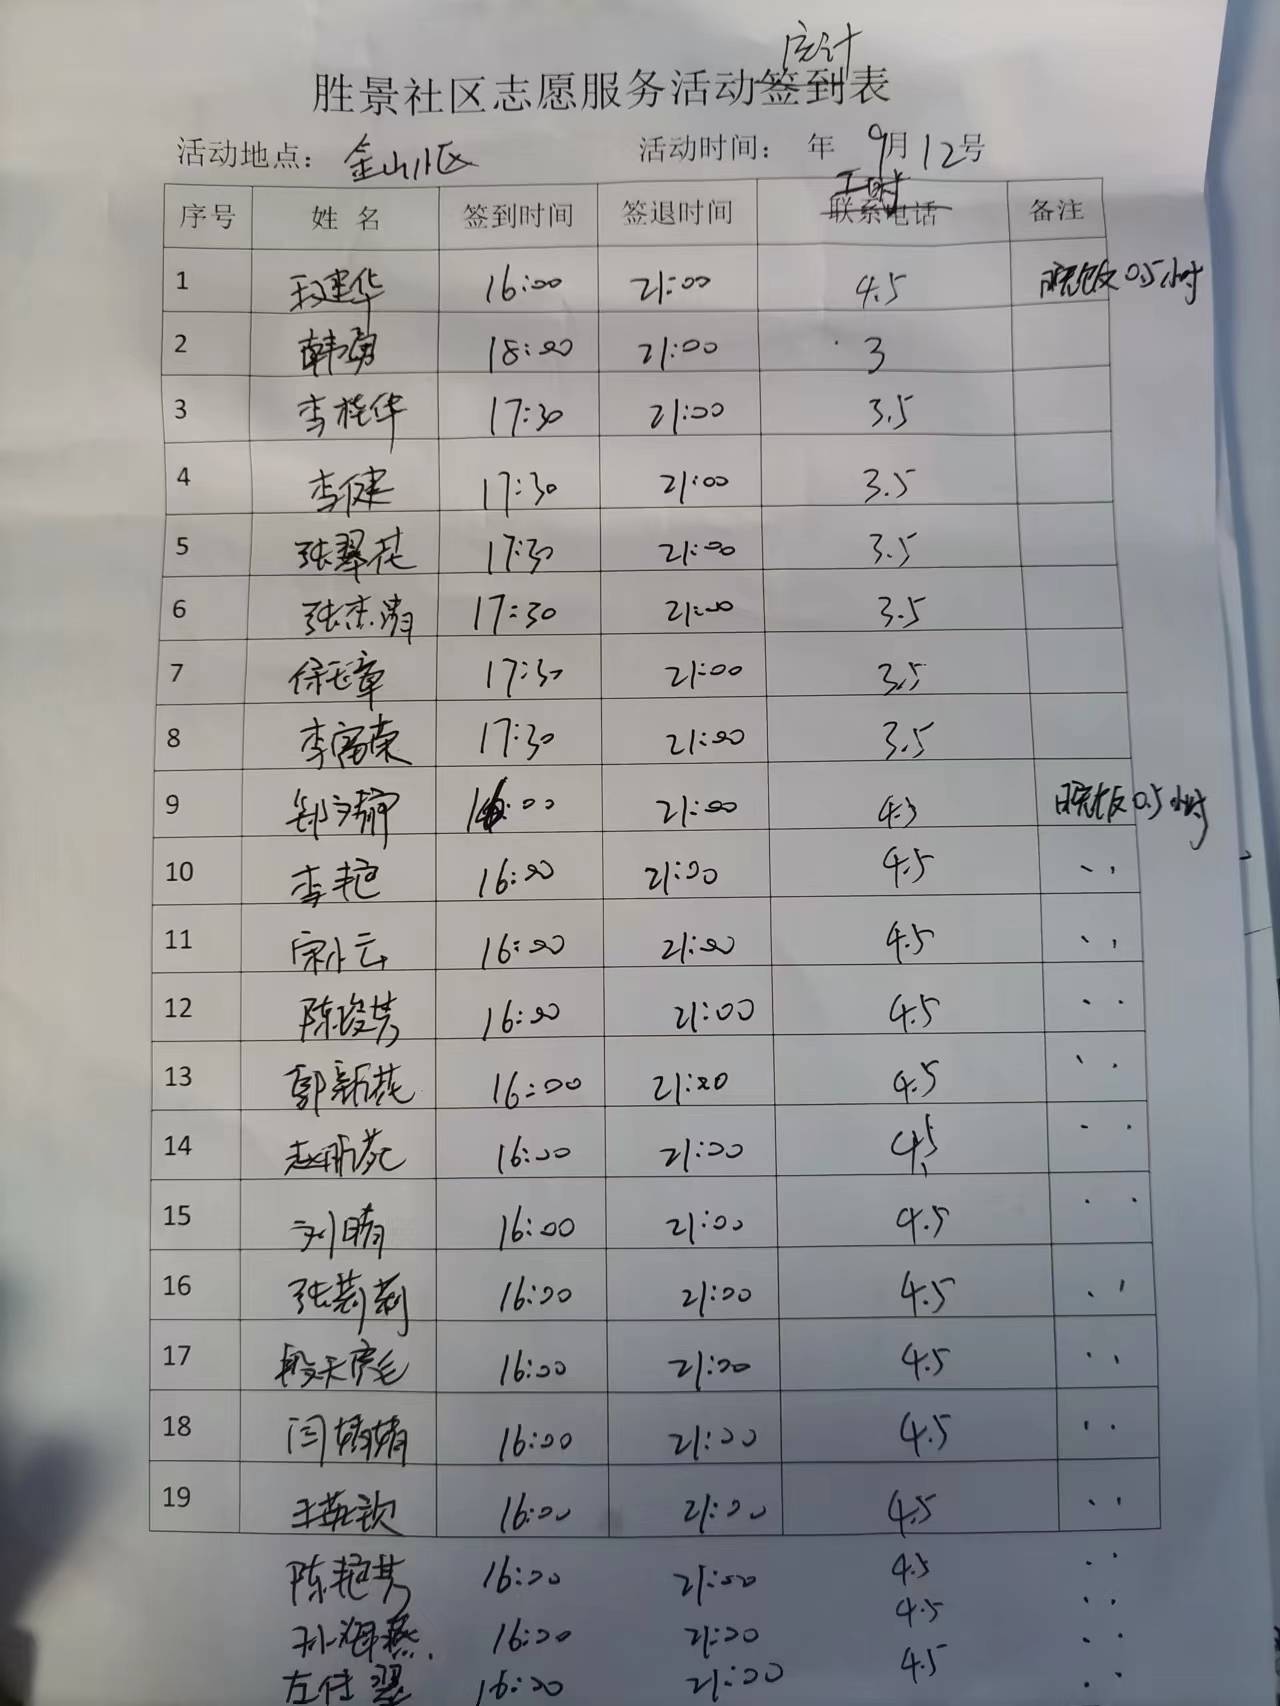 统计
胜景社区志愿服务活动签到表
活动地点： 金山小区 活动时间： 年 9月12号
工时
序号 姓名 签到时间 签退时间 联系电话 备注
1 建华 16:00 21:00 4.5 晚饭0.5小时
2 韩勇 18:00 21:00 3
3 李桂华 17:30 21:00 3.5
4 李健 17:30 21:00 3.5
5 张翠花 17:30 21:00 3.5
6 张杰 17:30 21:00 3.5
7 章 17:30 21:00 3.5
8 李富荣 17:30 21:00 3.5
9 郑文静 16:00 21:00 4.5 晚饭0.5小时
10 李艳 16:00 21:00 4.5 〃
11 宋小云 16:00 21:00 4.5 〃
12 陈俊芳 16:00 21:00 4.5 〃
13 郭新花 16:00 21:00 4.5 〃
14 赵苑 16:00 21:00 4.5 〃
15 刘晴 16:00 21:00 4.5 〃
16 张莉莉 16:00 21:00 4.5 〃
17 段天 16:00 21:00 4.5 〃
18 闫婧婧 16:00 21:00 4.5 〃
19 王英钦 16:00 21:00 4.5 〃
陈艳芳 16:00 21:00 4.5 〃
孙海燕 16:00 21:00 4.5 〃
左佳翠 16:00 21:00 4.5 〃